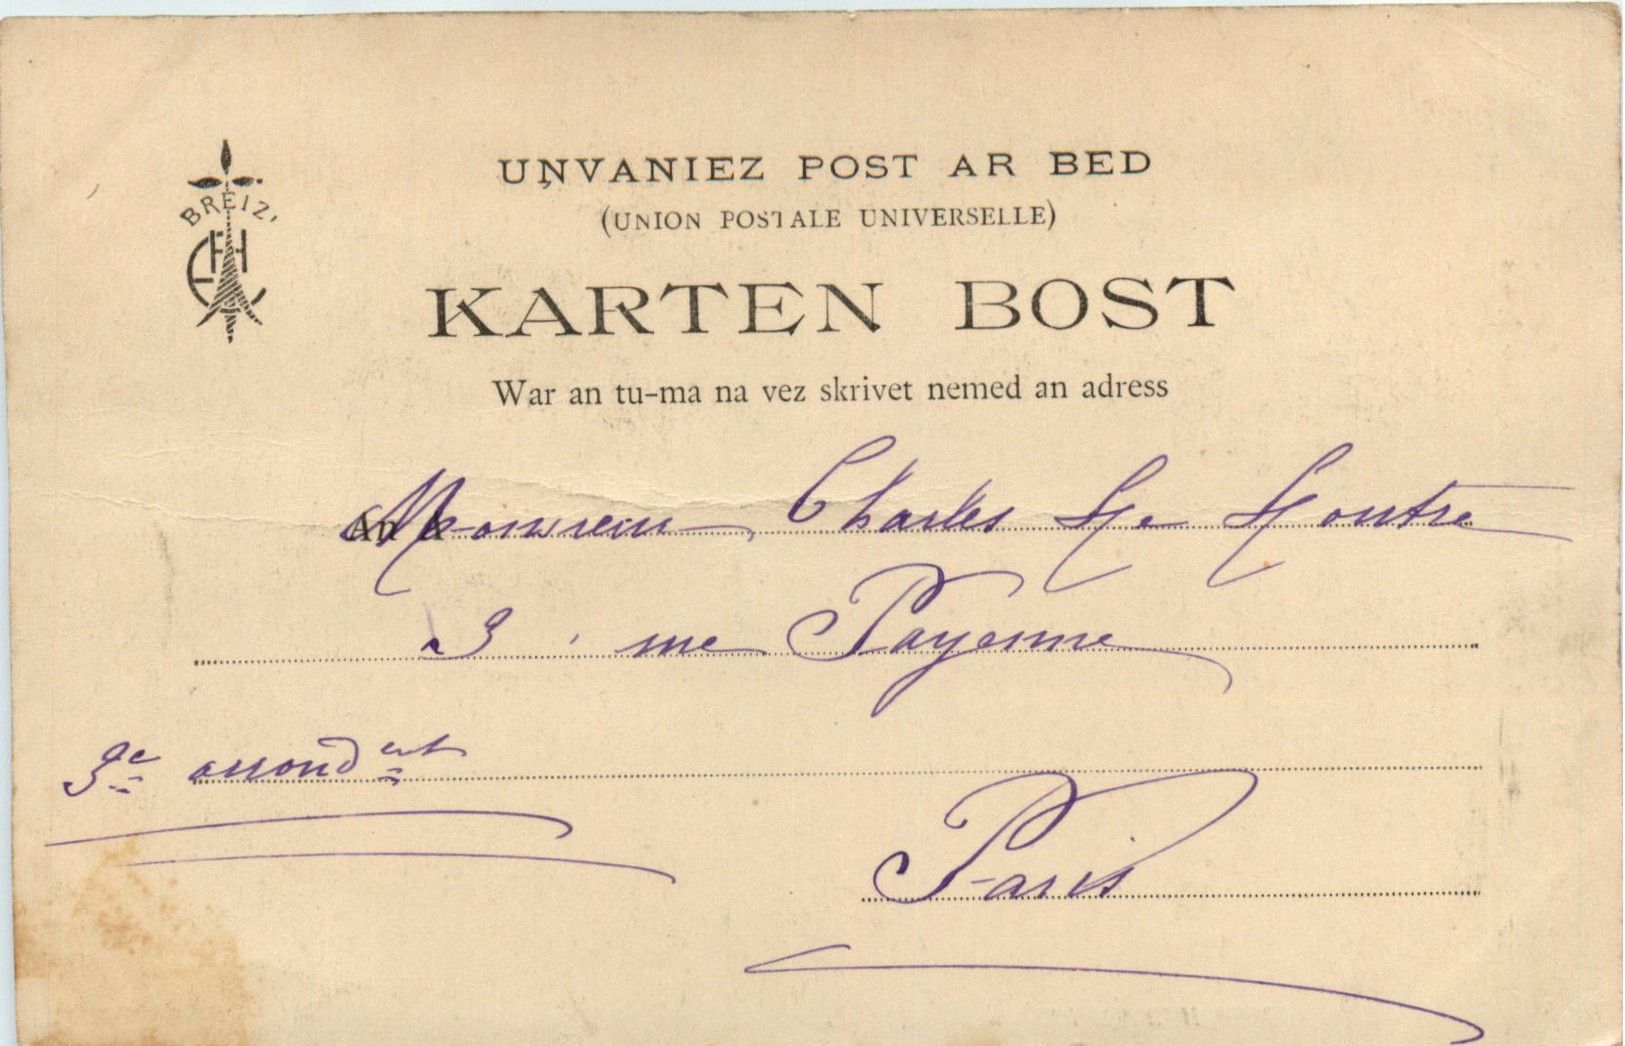 BREIZ'
UṆVANIEZ POST AR BED
(UNION POSTALE UNIVERSELLE)
KARTEN BOST
War an tu-ma na vez skrivet nemed an adress
An A Monsieur Charles Le
3 rue Payenne
3e arrondt
Paris